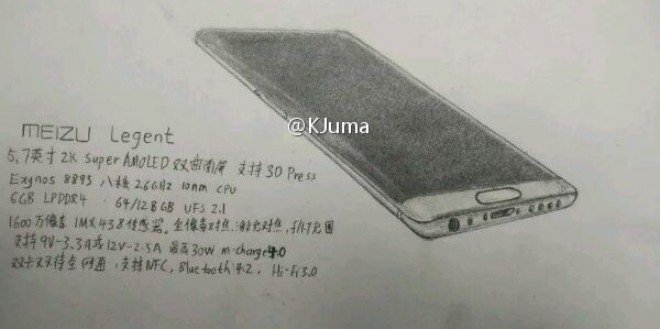 @KJuma
MEIZU Legent
5.7英寸 2K Super AMOLED 双曲面屏 支持 3D Press
Exynos 8893 八核 2.6GHz 10nm CPU
6GB LPDDR4 64/128GB UFS 2.1
1600万像素 IMX438传感器. 全像素对焦,激光对焦, f/1.7光圈
支持9V-3.3A或12V-2.5A 最高30W m-charge4.0
双卡双待全网通,支持NFC, Bluetooth 4.2, Hi-Fi3.0